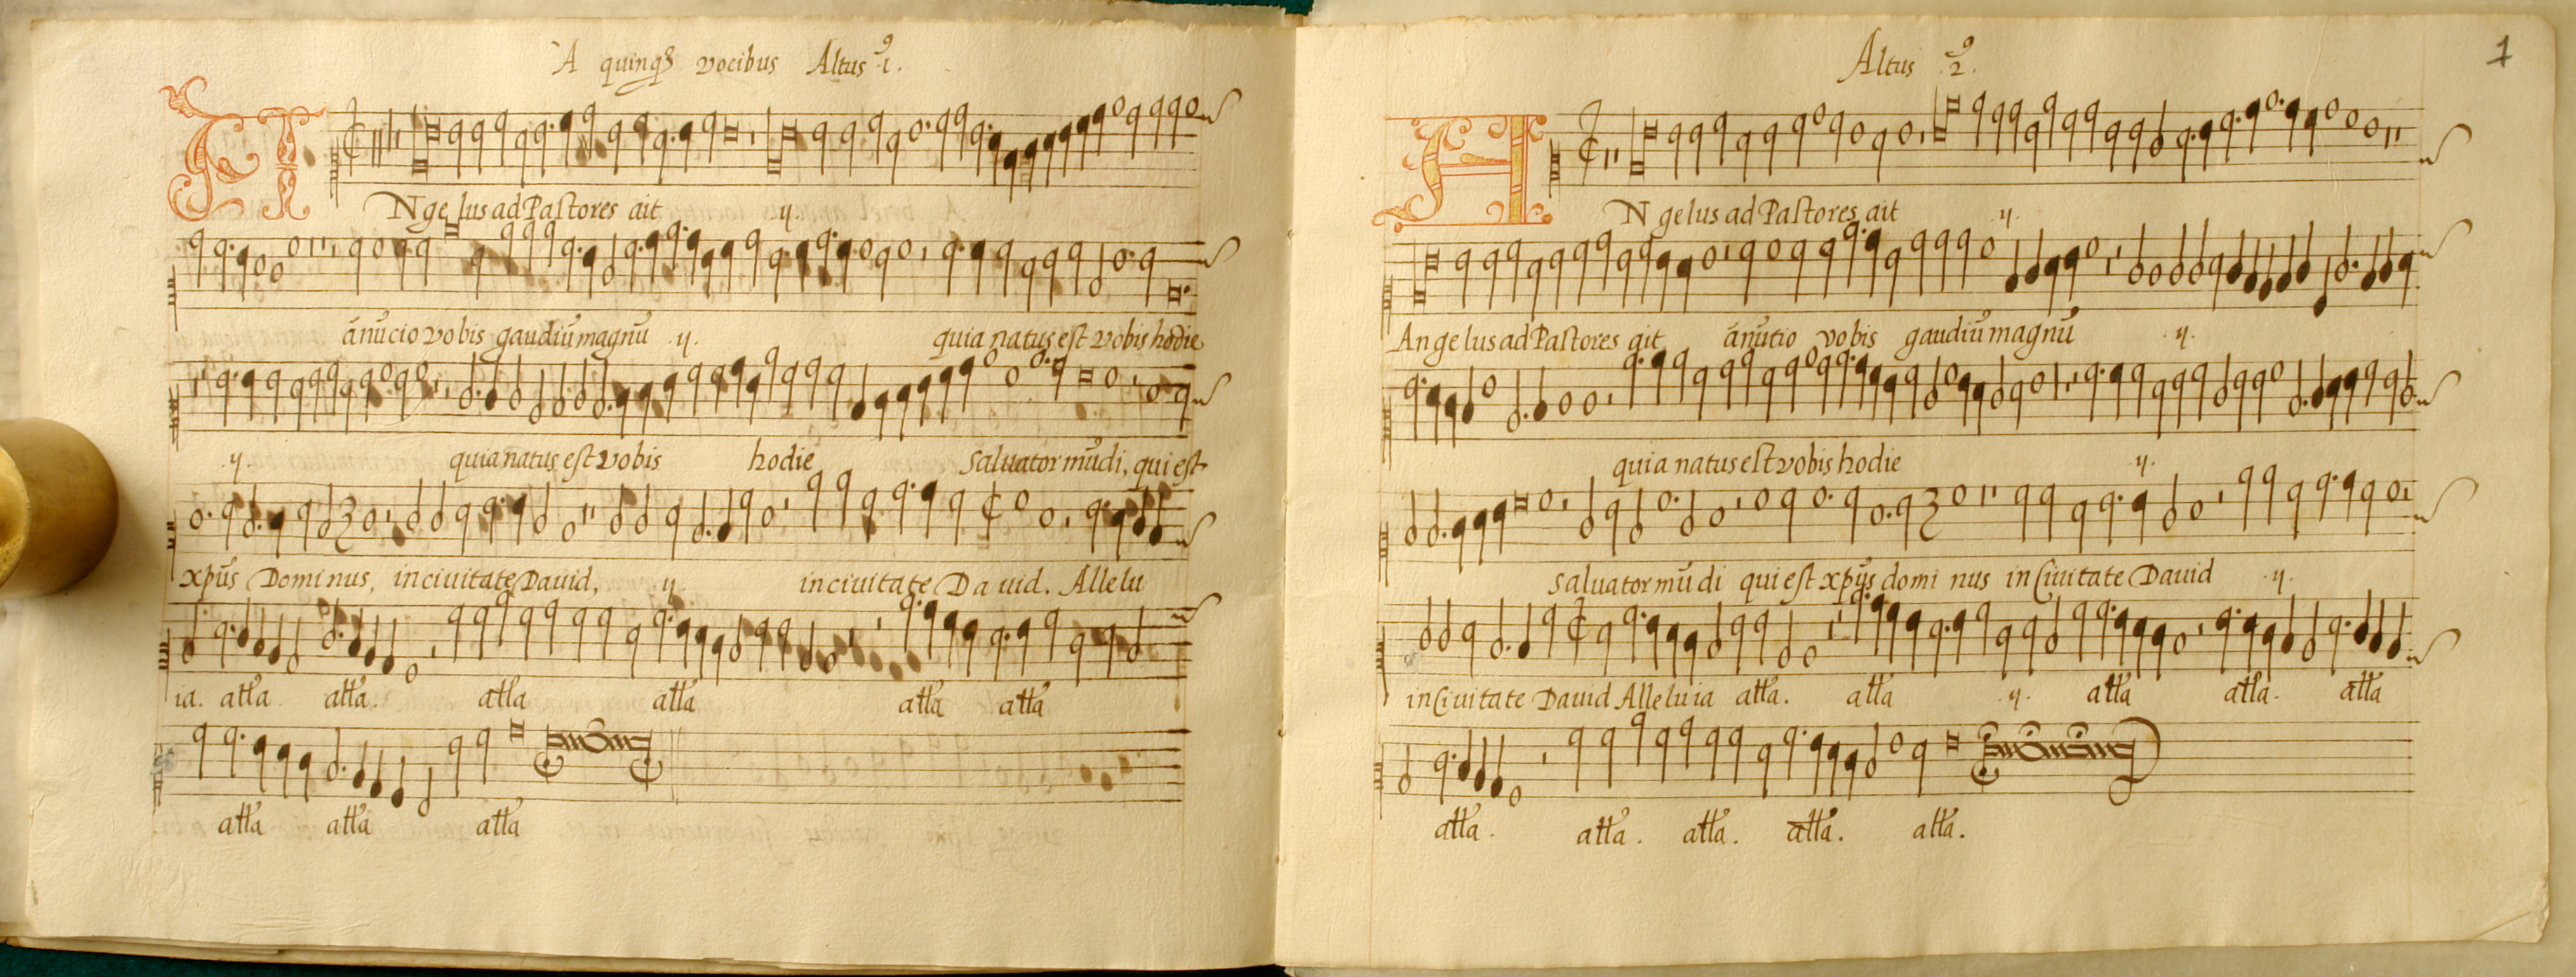 A quinqȝ vocibus Altus .1.us
ANgelus ad Paſtores ait .ij.
ánũcio vobis gaudiũ magnũ .ij. quia natus eſt vobis hodie
.ij. quia natus eſt vobis hodie Saluator mũdi, qui eſt
xpũs Dominus, in ciuitate Dauid, .ij. in ciuitate Dauid. Allelu
ia. atta. atta. atta atta atta atta
atta atta atta
Altus .2.us
1
AN gelus ad Paſtores ait .ij.
Angelus ad Paſtores ait ánũtio vobis gaudiũ magnũ .ij.
quia natus eſt vobis hodie .ij.
Saluator mũdi qui eſt xpũs dominus in Ciuitate Dauid .ij.
in Ciuitate Dauid Alleluia atta. atta .ij. atta atta. atta
atta. atta. atta. atta. atta.